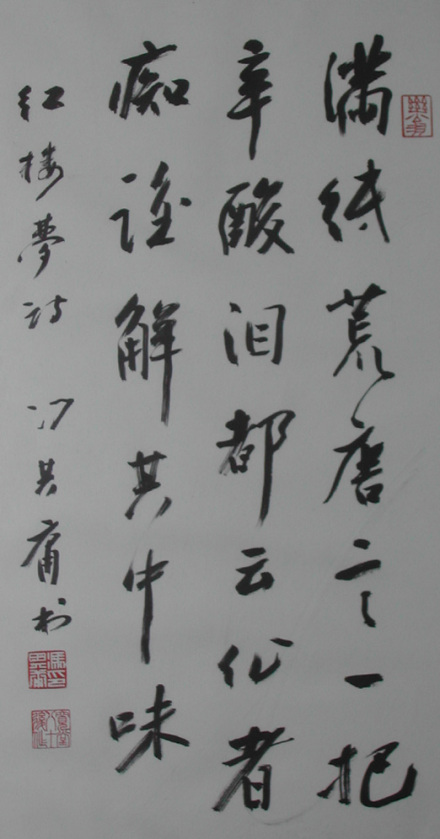 满纸荒唐言一把
辛酸泪都云作者
痴谁解其中味
红楼梦诗 冯其庸书